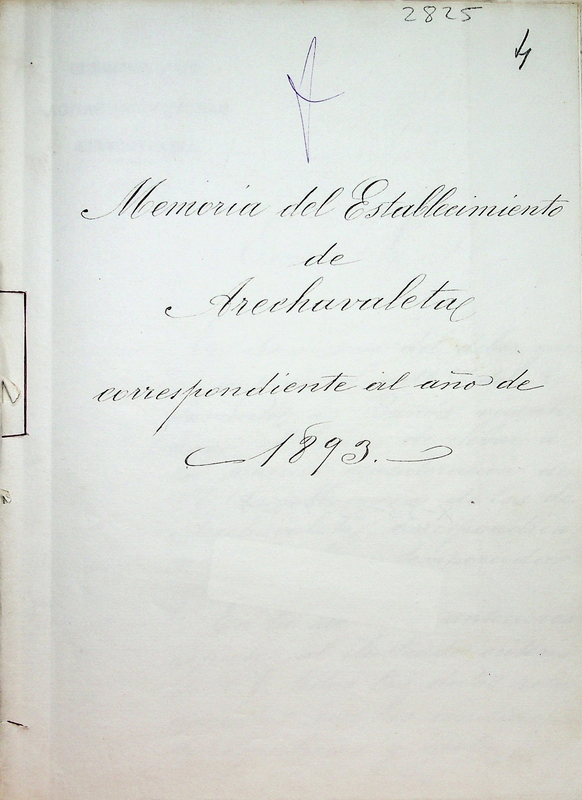 2825
4
Memoria del Establecimiento
de
Arechavaleta
correspondiente al año de
1893.